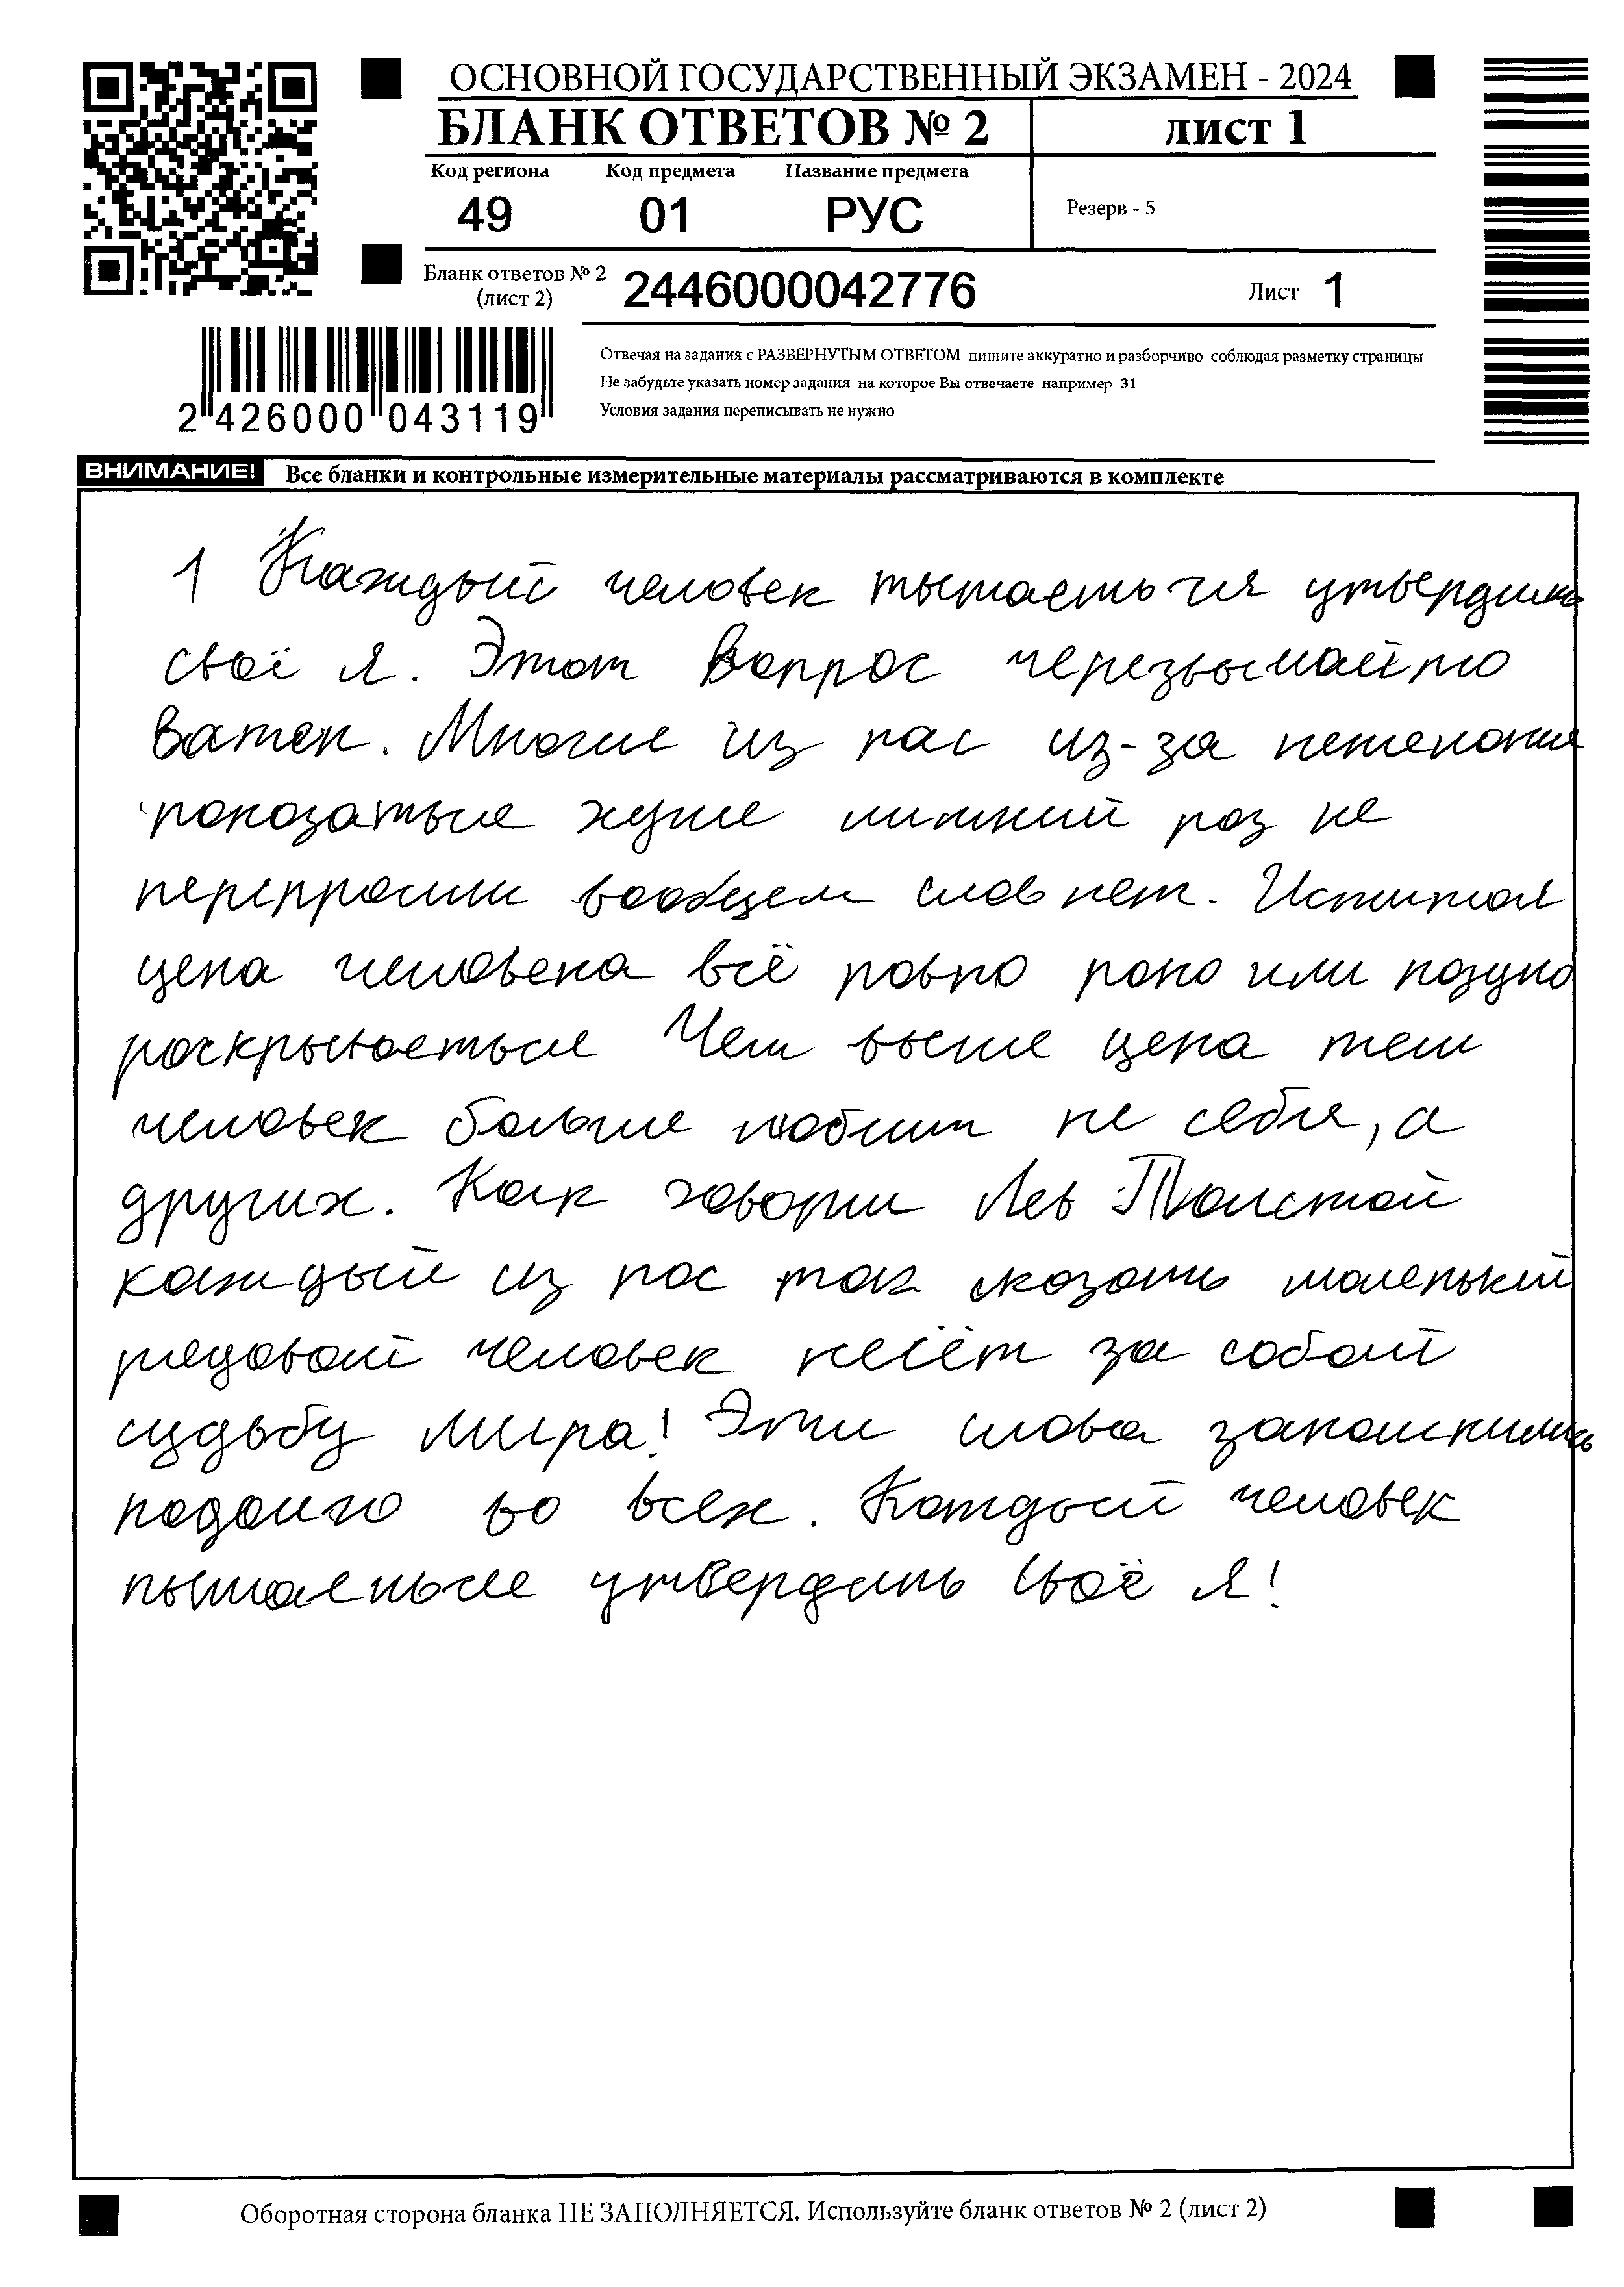 ОСНОВНОЙ ГОСУДАРСТВЕННЫЙ ЭКЗАМЕН - 2024
БЛАНК ОТВЕТОВ № 2
лист 1
Код региона Код предмета Название предмета
49 01 РУС
Резерв - 5
Бланк ответов № 2
(лист 2)
2446000042776
Лист 1
Отвечая на задания с РАЗВЕРНУТЫМ ОТВЕТОМ пишите аккуратно и разборчиво соблюдая разметку страницы
Не забудьте указать номер задания на которое Вы отвечаете например 31
Условия задания переписывать не нужно
2 426000 043119
ВНИМАНИЕ! Все бланки и контрольные измерительные материалы рассматриваются в комплекте
1 Каждый человек пытаеться утвердить
своё я. Этот вопрос черезвычайно
важен. Многие из нас из-за нежелания
показаться хуже лишний раз не
переспросить слов нет. Истиная
цена человека всё равно рано или поздно
раскрываеться Чем выше цена тем
человек больше любит не себя, а
других. Как говорил Лев Толстой
каждый из нас так сказать маленький
рядовой человек несёт за собой
судьбу мира! Эти слова запомнились
надолго во всех. Каждый человек
пытаеться утвердить своё я!
Оборотная сторона бланка НЕ ЗАПОЛНЯЕТСЯ. Используйте бланк ответов № 2 (лист 2)